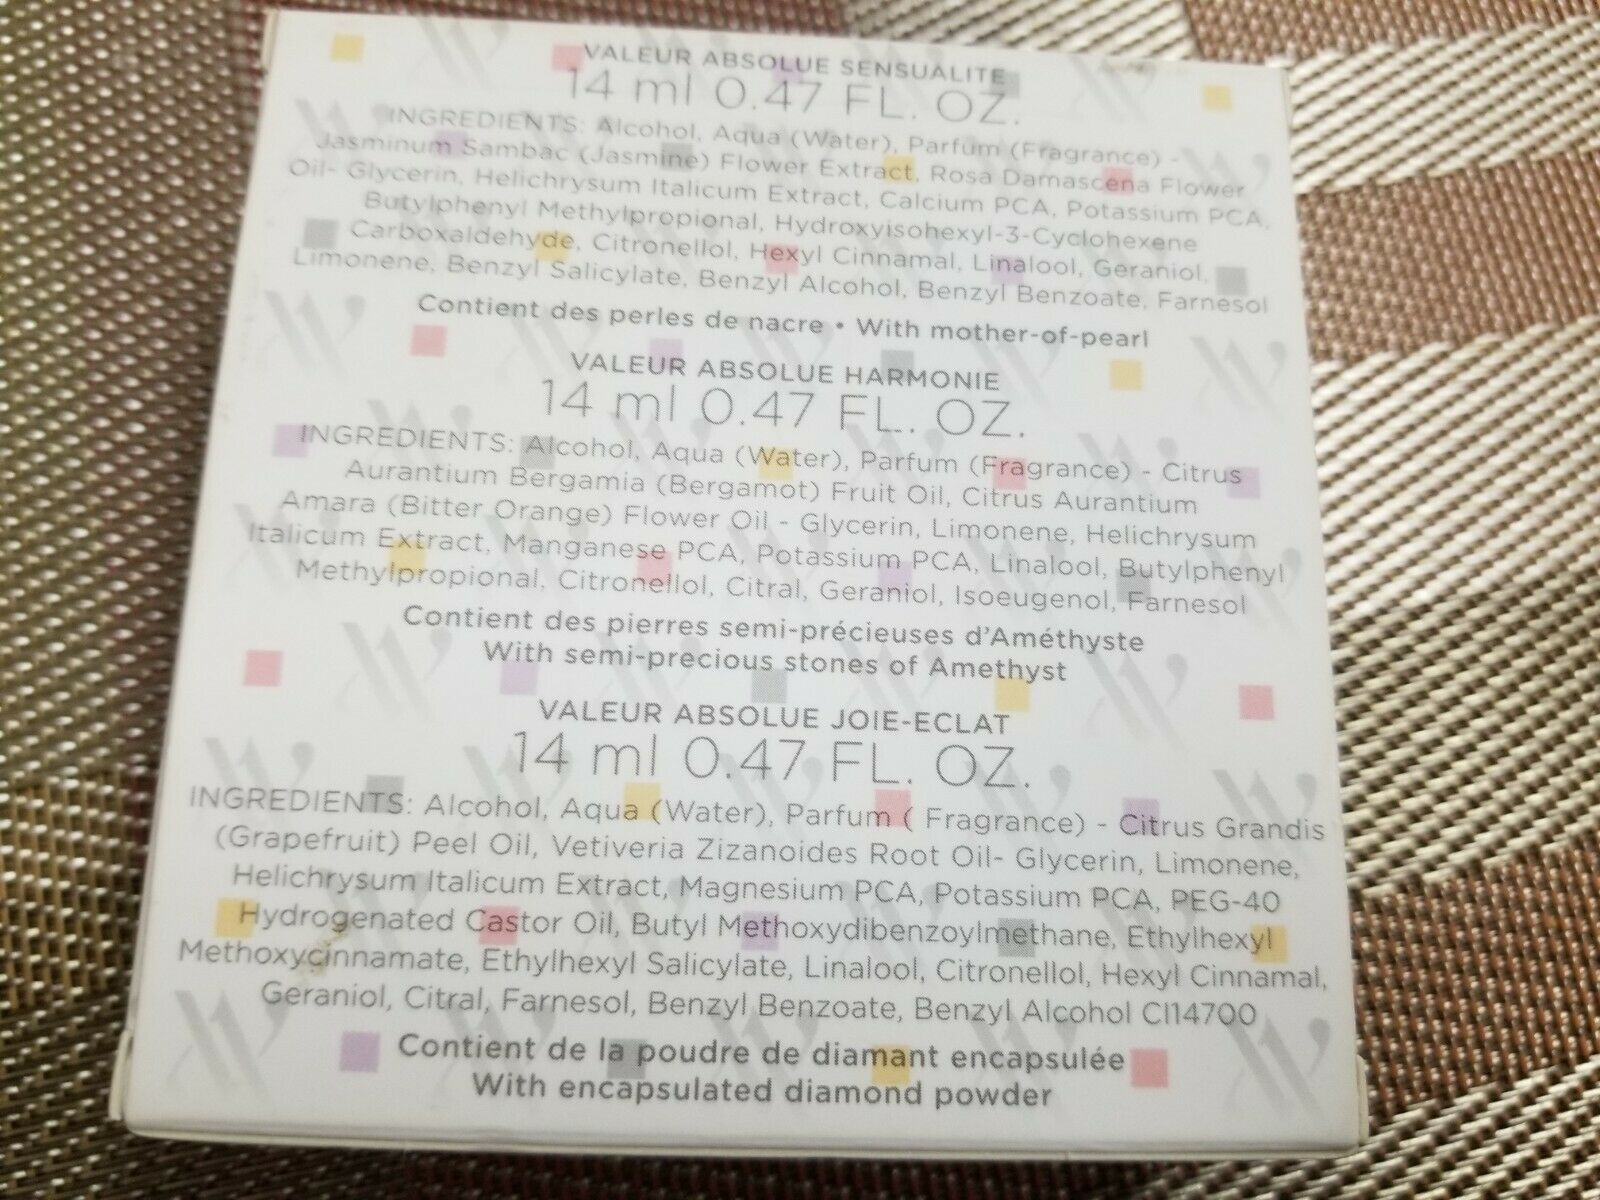 VALEUR ABSOLUE SENSUALITE
14 ml 0.47 FL. OZ.
INGREDIENTS: Alcohol, Aqua (Water), Parfum (Fragrance) -
Jasminum Sambac (Jasmine) Flower Extract, Rosa Damascena Flower
Oil- Glycerin, Helichrysum Italicum Extract, Calcium PCA, Potassium PCA,
Butylphenyl Methylpropional, Hydroxyisohexyl-3-Cyclohexene
Carboxaldehyde, Citronellol, Hexyl Cinnamal, Linalool, Geraniol,
Limonene, Benzyl Salicylate, Benzyl Alcohol, Benzyl Benzoate, Farnesol
Contient des perles de nacre • With mother-of-pearl
VALEUR ABSOLUE HARMONIE
14 ml 0.47 FL. OZ.
INGREDIENTS: Alcohol, Aqua (Water), Parfum (Fragrance) - Citrus
Aurantium Bergamia (Bergamot) Fruit Oil, Citrus Aurantium
Amara (Bitter Orange) Flower Oil - Glycerin, Limonene, Helichrysum
Italicum Extract, Manganese PCA, Potassium PCA, Linalool, Butylphenyl
Methylpropional, Citronellol, Citral, Geraniol, Isoeugenol, Farnesol
Contient des pierres semi-précieuses d'Améthyste
With semi-precious stones of Amethyst
VALEUR ABSOLUE JOIE-ECLAT
14 ml 0.47 FL. OZ.
INGREDIENTS: Alcohol, Aqua (Water), Parfum ( Fragrance) - Citrus Grandis
(Grapefruit) Peel Oil, Vetiveria Zizanoides Root Oil- Glycerin, Limonene,
Helichrysum Italicum Extract, Magnesium PCA, Potassium PCA, PEG-40
Hydrogenated Castor Oil, Butyl Methoxydibenzoylmethane, Ethylhexyl
Methoxycinnamate, Ethylhexyl Salicylate, Linalool, Citronellol, Hexyl Cinnamal,
Geraniol, Citral, Farnesol, Benzyl Benzoate, Benzyl Alcohol CI14700
Contient de la poudre de diamant encapsulée
With encapsulated diamond powder